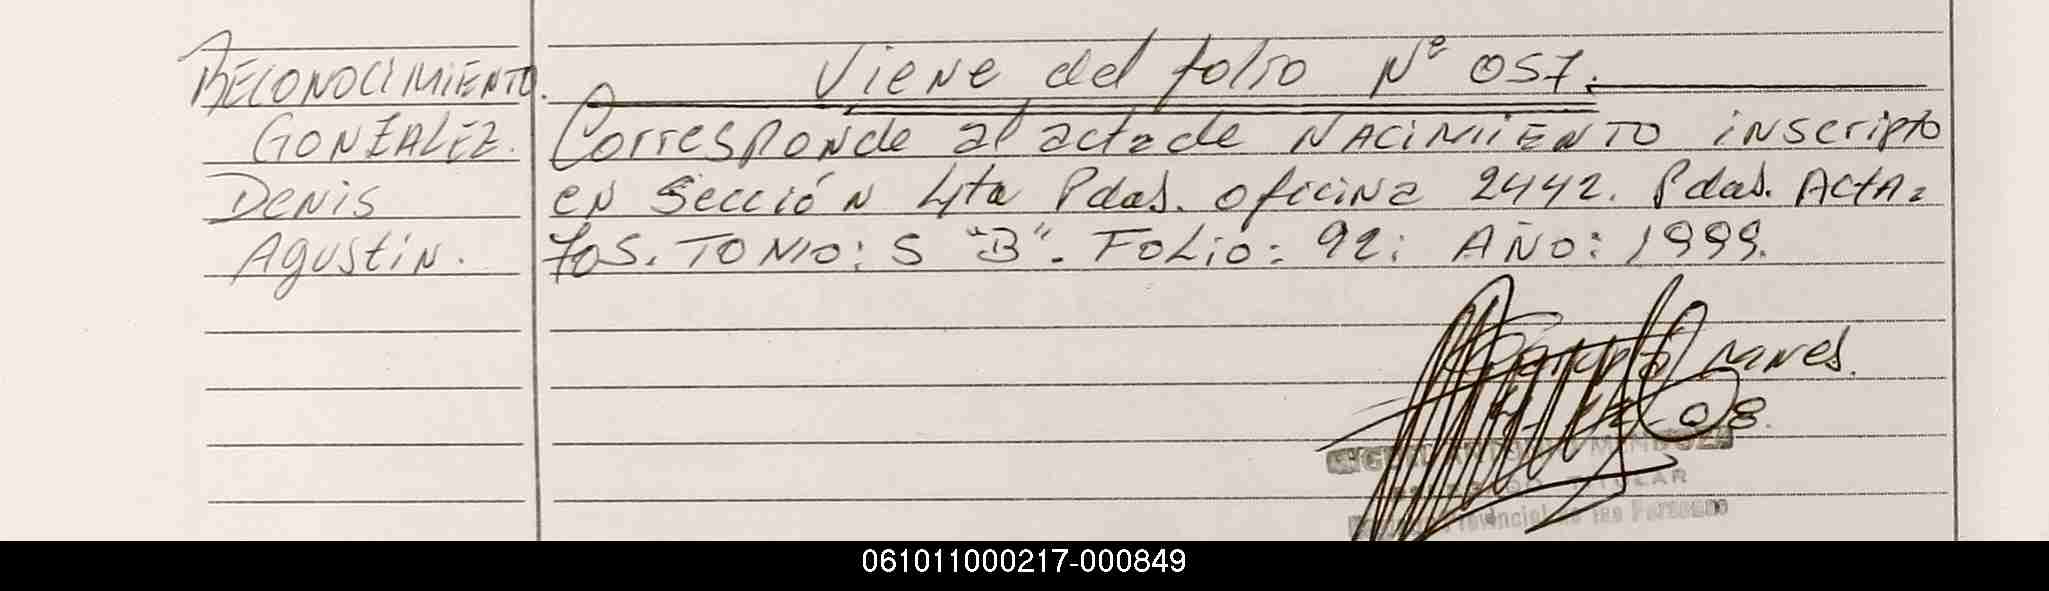 RECONOCIMIENTO.
GONZALEZ.
Denis
Agustin.
Viene del folio Nº 057.
Corresponde al acta de NACIMIENTO inscripto
en Sección 4ta Pdas. oficina 2442. Pdas. Acta:
705. TOMO: 5 "B". FOLIO: 92: AÑO: 1999.
08.
MENDOZA
Provincial de las Personas
061011000217-000849